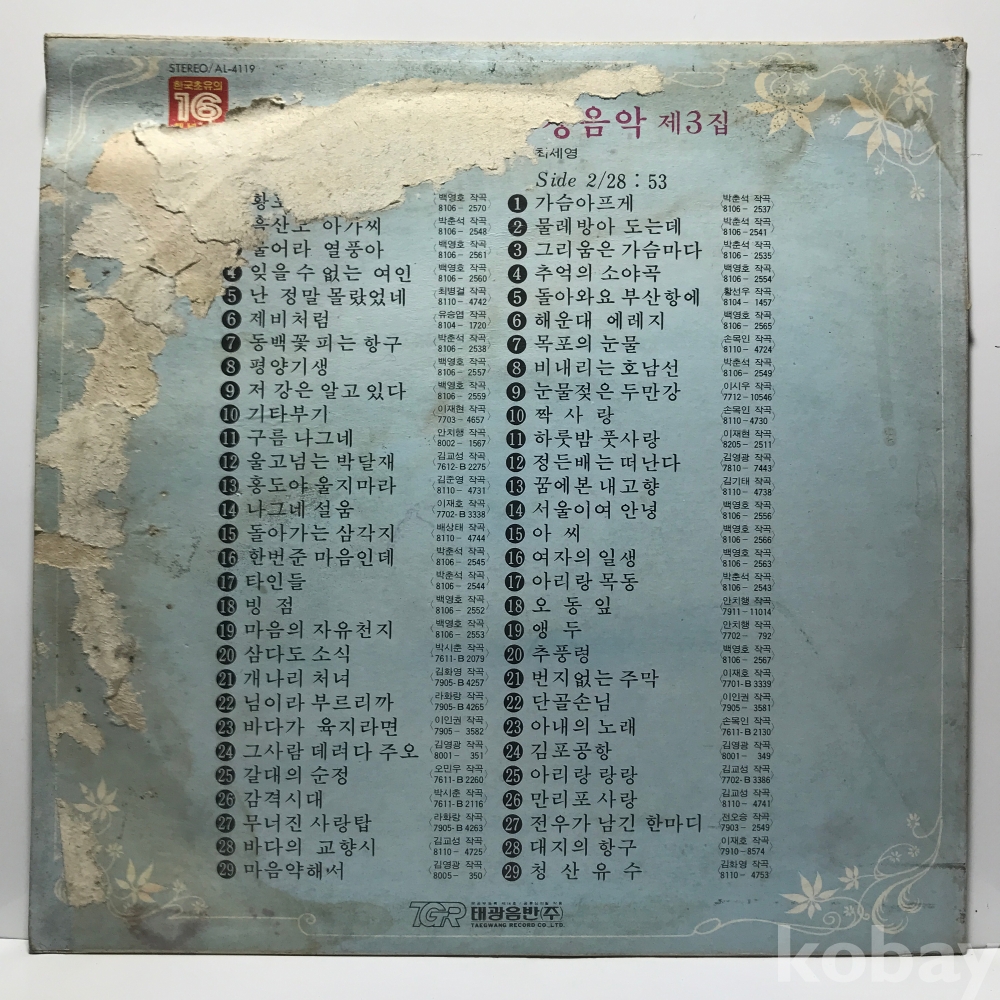 STEREO/AL-4119
한국초유의
16
음악 제3집
최세영
Side 2/28 : 53
황
백영호 작곡 8106-2570
흑산도 아가씨 박춘석 작곡 8106-2548
불어라 열풍아 백영호 작곡 8106-2561
4 잊을 수 없는 여인 백영호 작곡 8106-2560
5 난 정말 몰랐었네 최병걸 작곡 8110-4742
6 제비처럼 유승엽 작곡 8104-1720
7 동백꽃 피는 항구 박춘석 작곡 8106-2538
8 평양기생 백영호 작곡 8106-2557
9 저 강은 알고 있다 백영호 작곡 8106-2559
10 기타부기 이재현 작곡 7703-4657
11 구름 나그네 안치행 작곡 8002-1567
12 울고넘는 박달재 김교성 작곡 7612-B2275
13 홍도야 울지마라 김준영 작곡 8110-4731
14 나그네 설움 이재호 작곡 7702-B3338
15 돌아가는 삼각지 배상태 작곡 8110-4744
16 한번준 마음인데 박춘석 작곡 8106-2545
17 타인들 박춘석 작곡 8106-2544
18 빙 점 백영호 작곡 8106-2552
19 마음의 자유천지 백영호 작곡 8106-2553
20 삼다도 소식 박시춘 작곡 7611-B2079
21 개나리 처녀 김화영 작곡 7905-B4257
22 님이라 부르리까 라화랑 작곡 7905-B4265
23 바다가 육지라면 이인권 작곡 7905-3582
24 그사람 데려다 주오 김영광 작곡 8001-351
25 갈대의 순정 오민우 작곡 7611-B2260
26 감격시대 박시춘 작곡 7611-B2116
27 무너진 사랑탑 라화랑 작곡 7905-B4263
28 바다의 교향시 김교성 작곡 8110-4725
29 마음약해서 김영광 작곡 8005-350
1 가슴아프게 박춘석 작곡 8106-2537
2 물레방아 도는데 박춘석 작곡 8106-2541
3 그리움은 가슴마다 박춘석 작곡 8106-2535
4 추억의 소야곡 백영호 작곡 8106-2554
5 돌아와요 부산항에 황선우 작곡 8104-1457
6 해운대 에레지 백영호 작곡 8106-2565
7 목포의 눈물 손목인 작곡 8110-4724
8 비내리는 호남선 박춘석 작곡 8106-2549
9 눈물젖은 두만강 이시우 작곡 7712-10546
10 짝 사 랑 손목인 작곡 8110-4730
11 하룻밤 풋사랑 이재현 작곡 8205-2511
12 정든배는 떠난다 김영광 작곡 7810-7443
13 꿈에본 내고향 김기태 작곡 8110-4738
14 서울이여 안녕 백영호 작곡 8106-2556
15 아 씨 백영호 작곡 8106-2566
16 여자의 일생 백영호 작곡 8106-2563
17 아리랑 목동 박춘석 작곡 8106-2543
18 오 동 잎 안치행 작곡 7911-11014
19 앵 두 안치행 작곡 7702-792
20 추풍령 백영호 작곡 8106-2567
21 번지없는 주막 이재호 작곡 7701-B3339
22 단골손님 이인권 작곡 7905-3581
23 아내의 노래 손목인 작곡 7611-B2130
24 김포공항 김영광 작곡 8001-349
25 아리랑 랑랑 김교성 작곡 7702-B3386
26 만리포 사랑 김교성 작곡 8110-4741
27 전우가 남긴 한마디 전오승 작곡 7903-2549
28 대지의 항구 이재호 작곡 7910-8574
29 청 산 유 수 김화영 작곡 8110-4753
TGR 태광음반(주)
TAEGWANG RECORD CO., LTD.
kobay